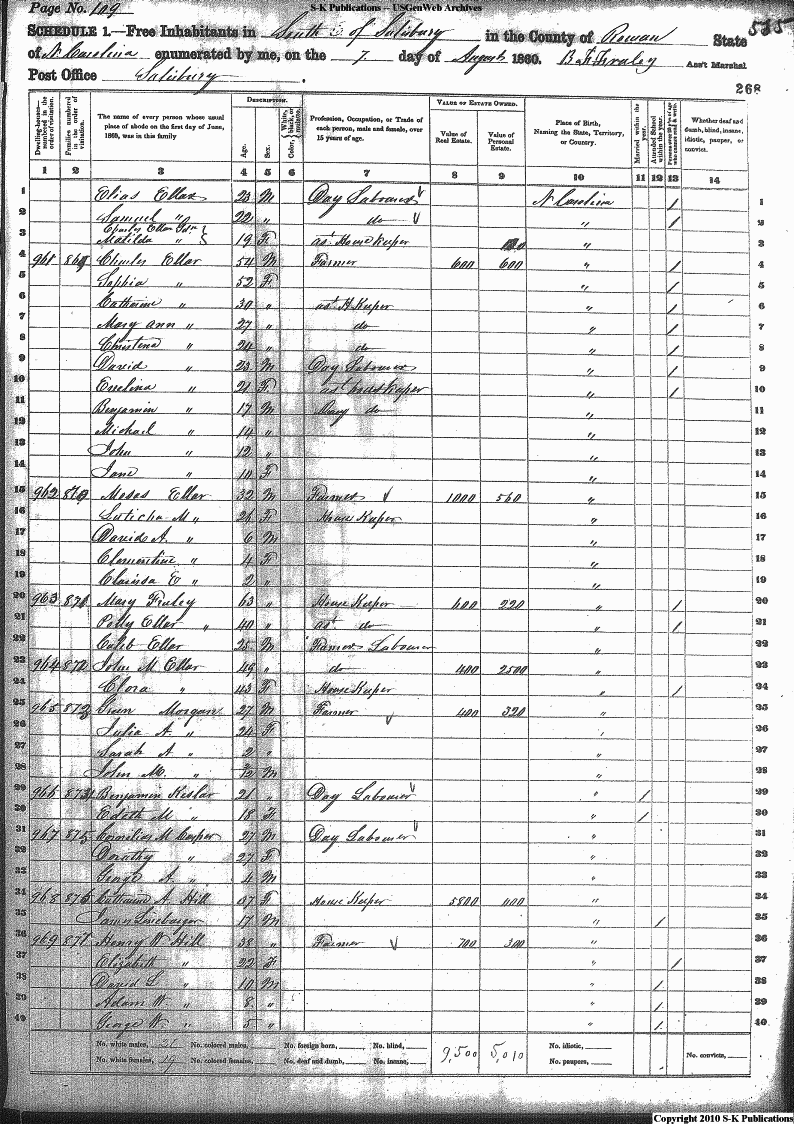 S-K Publications -- USGenWeb Archives
Page No. 109
535
SCHEDULE 1.—Free Inhabitants in South of Salisbury in the County of Rowan State
of N Carolina enumerated by me, on the 7 day of August 1860. B F Fraley Ass't Marshal
Post Office Salisbury
268
Dwelling-houses—numbered in the order of visitation.
Families numbered in the order of visitation.
The name of every person whose usual place of abode on the first day of June, 1860, was in this family
DESCRIPTION.
Age.
Sex.
Color, White, black, or mulatto.
Profession, Occupation, or Trade of each person, male and female, over 15 years of age.
VALUE OF ESTATE OWNED.
Value of Real Estate.
Value of Personal Estate.
Place of Birth, Naming the State, Territory, or Country.
Married within the year.
Attended School within the year.
Persons over 20 years of age who cannot read & write.
Whether deaf and dumb, blind, insane, idiotic, pauper, or convict.
1 2 3 4 5 6 7 8 9 10 11 12 13 14
1 Elias Ellar 23 M Day Labourer N Carolina / 1
2 Samuel " 22 " do " / 2
3 Matilda " 19 F ast House Keeper " 3
4 961 869 Charles Ellar 54 M Farmer 600 600 " / 4
5 Sophia " 52 F " / 5
6 Catharine " 30 " ast H Keeper " / 6
7 Mary Ann " 27 " do " / 7
8 Christena " 24 " do " / 8
9 David " 23 M Day Labourer " / 9
10 Evelina " 21 F ast houskeper " / 10
11 Benjamin " 17 M Day do " 11
12 Michael " 14 " " 12
13 John " 12 " " 13
14 Jane " 10 F " 14
15 962 870 Moses Ellar 32 M Farmer 1000 560 " 15
16 Luticha M " 26 F House Keeper " 16
17 David A. " 6 M " 17
18 Clementine " 4 F " 18
19 Clarinda E " 2 " " 19
20 963 871 Mary Fraley 63 " House Keeper 400 220 " / 20
21 Polly Ellar " 40 " ast do " / 21
22 Caleb Ellar 25 M Farmer Labourer " 22
23 964 872 John M Ellar 49 " do 400 2500 " 23
24 Clora " 43 F House Keeper " / 24
25 965 873 Green Morgan 27 M Farmer 400 320 " 25
26 Julia A. " 24 F " 26
27 Sarah A " 2 " " 27
28 John M. " M " 28
29 966 874 Benjamin Keslar 21 " Day Labourer " / 29
30 Edith M " 18 F " / 30
31 967 875 Cornelius M Casper 27 M Day Labourer " 31
32 Dorathy " 27 F " 32
33 George A. " 4 M " 33
34 968 876 Catharine A. Hill F House Keeper 5800 " 34
35 James Linebarger 17 M " / 35
36 969 877 Henry W Hill 38 " Farmer 700 300 " 36
37 Elizabeth " 22 F " / 37
38 David L. " 10 M " / 38
39 Adam W. " 8 " " / 39
40 George W. " 5 " " / 40
No. white males, No. colored males, No. foreign born, No. blind, 9,500 5,010 No. idiotic,
No. white females, 19 No. colored females, No. deaf and dumb, No. insane, No. paupers, No. convicts,
Copyright 2010 S-K Publications